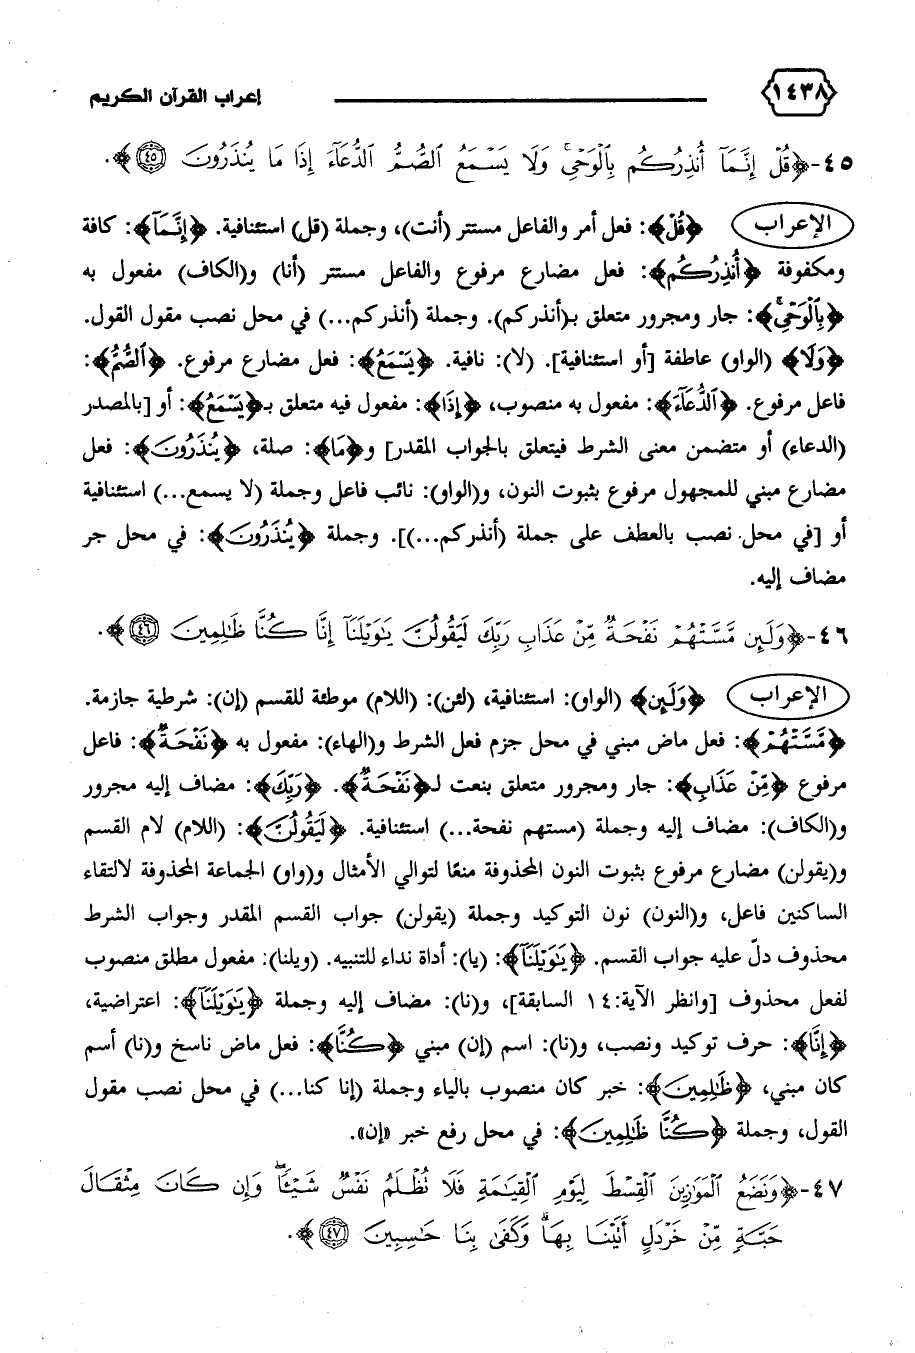 ١٤٣٨ إعراب القرآن الكريم
٤٥-﴿قُلْ إِنَّمَآ أُنذِرُكُم بِٱلْوَحْيِۚ وَلَا يَسْمَعُ ٱلصُّمُّ ٱلدُّعَآءَ إِذَا مَا يُنذَرُونَ ٤٥﴾.
الإعراب ﴿قُلْ﴾: فعل أمر والفاعل مستتر (أنت)، وجملة (قل) استئنافية. ﴿إِنَّمَآ﴾: كافة
ومكفوفة ﴿أُنذِرُكُم﴾: فعل مضارع مرفوع والفاعل مستتر (أنا) و(الكاف) مفعول به
﴿بِٱلْوَحْيِۚ﴾: جار ومجرور متعلق بـ(أنذركم). وجملة (أنذركم...) في محل نصب مقول القول.
﴿وَلَا﴾ (الواو) عاطفة [أو استئنافية]. (لا): نافية. ﴿يَسْمَعُ﴾: فعل مضارع مرفوع. ﴿ٱلصُّمُّ﴾:
فاعل مرفوع. ﴿ٱلدُّعَآءَ﴾: مفعول به منصوب، ﴿إِذَا﴾: مفعول فيه متعلق بـ﴿يَسْمَعُ﴾: أو [بالمصدر
(الدعاء) أو متضمن معنى الشرط فيتعلق بالجواب المقدر] و﴿مَا﴾: صلة، ﴿يُنذَرُونَ﴾: فعل
مضارع مبني للمجهول مرفوع بثبوت النون، و(الواو): نائب فاعل وجملة (لا يسمع...) استئنافية
أو [في محل نصب بالعطف على جملة (أنذركم...)]. وجملة ﴿يُنذَرُونَ﴾: في محل جر
مضاف إليه.
٤٦-﴿وَلَئِن مَّسَّتْهُمْ نَفْحَةٌ مِّنْ عَذَابِ رَبِّكَ لَيَقُولُنَّ يَٰوَيْلَنَآ إِنَّا كُنَّا ظَٰلِمِينَ ٤٦﴾.
الإعراب ﴿وَلَئِن﴾ (الواو): استئنافية، (لئن): (اللام) موطئة للقسم (إن): شرطية جازمة.
﴿مَّسَّتْهُمْ﴾: فعل ماض مبني في محل جزم فعل الشرط و(الهاء): مفعول به ﴿نَفْحَةٌ﴾: فاعل
مرفوع ﴿مِّنْ عَذَابِ﴾: جار ومجرور متعلق بنعت لـ﴿نَفْحَةٌ﴾. ﴿رَبِّكَ﴾: مضاف إليه مجرور
و(الكاف): مضاف إليه وجملة (مستهم نفحة...) استئنافية. ﴿لَيَقُولُنَّ﴾: (اللام) لام القسم
و(يقولن) مضارع مرفوع بثبوت النون المحذوفة منعًا لتوالي الأمثال و(واو) الجماعة المحذوفة لالتقاء
الساكنين فاعل، و(النون) نون التوكيد وجملة (يقولن) جواب القسم المقدر وجواب الشرط
محذوف دلّ عليه جواب القسم. ﴿يَٰوَيْلَنَآ﴾: (يا): أداة نداء للتنبيه. (ويلنا): مفعول مطلق منصوب
لفعل محذوف [وانظر الآية:١٤ السابقة]، و(نا): مضاف إليه وجملة ﴿يَٰوَيْلَنَآ﴾: اعتراضية،
﴿إِنَّا﴾: حرف توكيد ونصب، و(نا): اسم (إن) مبني ﴿كُنَّا﴾: فعل ماض ناسخ و(نا) أسم
كان مبني، ﴿ظَٰلِمِينَ﴾: خبر كان منصوب بالياء وجملة (إنا كنا...) في محل نصب مقول
القول، وجملة ﴿كُنَّا ظَٰلِمِينَ﴾: في محل رفع خبر «إن».
٤٧-﴿وَنَضَعُ ٱلْمَوَٰزِينَ ٱلْقِسْطَ لِيَوْمِ ٱلْقِيَٰمَةِ فَلَا تُظْلَمُ نَفْسٌ شَيْـًٔاۖ وَإِن كَانَ مِثْقَالَ
حَبَّةٍ مِّنْ خَرْدَلٍ أَتَيْنَا بِهَاۗ وَكَفَىٰ بِنَا حَٰسِبِينَ ٤٧﴾.